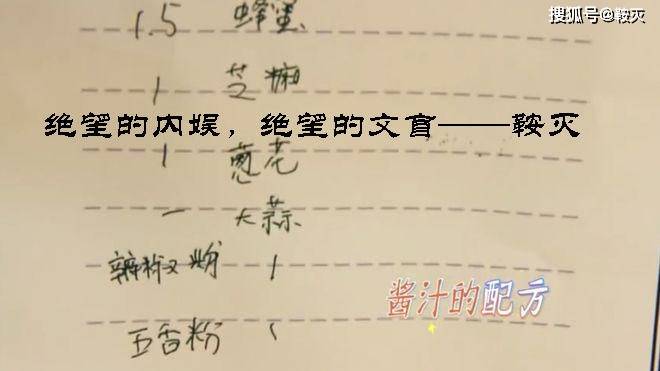 搜狐号@鞍灭
1.5 蜂蜜
1 芝
绝望的内娱，绝望的文盲——鞍灭
1 葱花
一 大蒜
粉 1
五香粉 1
酱汁的配方